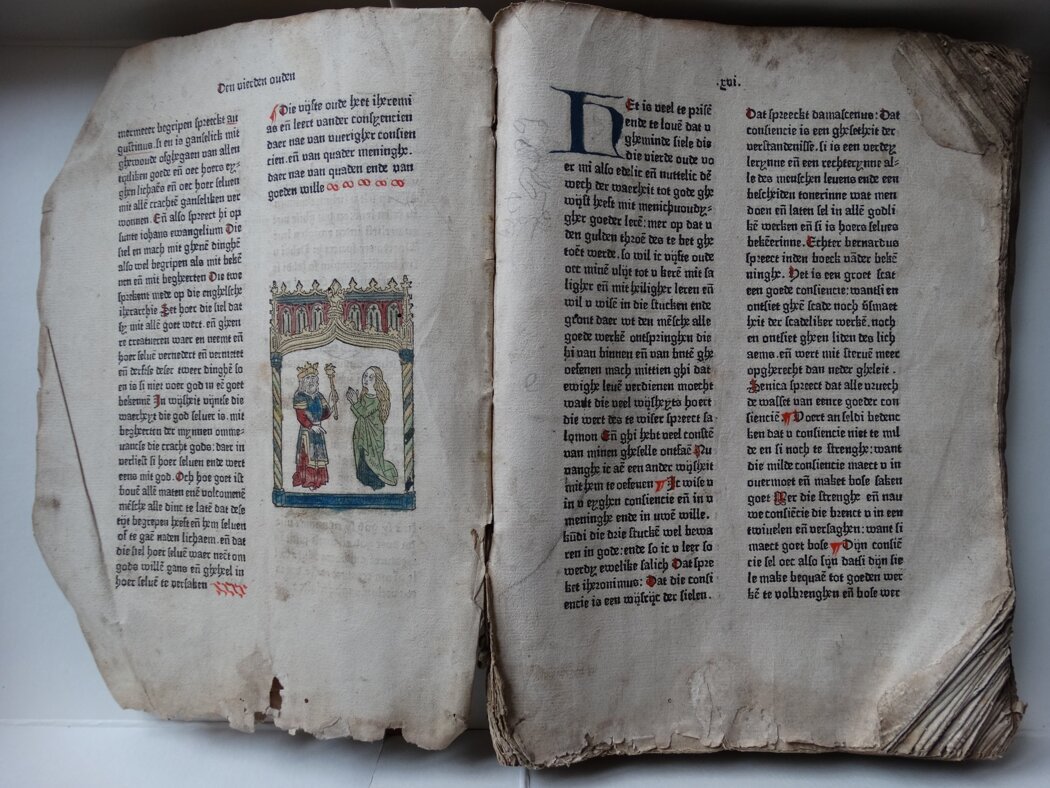 Den vierden ouden
mermeer begripen spreeckt au
gustinus. si en is ganselick mit
ghewoude ofghegaen van allen
tegliken goede eñ oec hoers ey
ghen lichaēs eñ oec hoer seluen
mit alle crachtē ganseliken ver
wonnen. En also spreect hi op
sunte iohans ewangelium Die
siel en mach mit ghenē dinghē
also wel begripen als mit bekē
nen eñ mit begheerten Die twe
sprekent mede op die enghelsche
iherarchie Set hoer die siel dat
sy mit allē goet wert. eñ gheen
re creatueren waer en neemt eñ
hoer seluē vernedert eñ vermaect
eñ so
en is si niet voer god in eē goet
bekennē In wijsheit vijnste die
waerheyt die god seluer is. mit
begheerten der mynnen omme-
uancse die cracht gods: daer in
verliest si hoer seluen ende wert
eens mit god. Och hoe goet ist
bouē allē maten enē volcomenē
mēsche alle dinc te latē dat dese
tijt begrepen heeft eñ hem seluen
of te gaē naden lichaem. eñ dat
die siel hoer seluē waer neēt om
gods willē gans eñ gheheel in
hoer seluē te versaken
Die vijfte oude heet iheremi
as eñ leert vander consyencien
daer nae van vuerigher consien
cien. eñ van quader meninghe.
daer nae van quaden ende van
goeden wille
.xvi.
HEt is veel te prisē
ende te louē dat v
gheminde siele die
die vierde oude vo
er mi also edelic eñ nuttelic dē
wech der waerheit tot gode ghe
wijst heeft mit menichuoudy-
gher goeder lerē: mer op dat v
den gulden throē des te bet ghe
toēt werde. so wil ic vijfte oude
oec minē vlijt tot v kerē mit sa
ligher eñ mit heiligher leren eñ
wil v wisē in die stucken ende
gront daer wt den mēsche alle
goede werkē ontspringhen die
hi van binnen eñ van butē ghe
oefenen mach mittien ghi dat
ewighe leuē verdienen moecht
want die veel wijsheyts hoert
die wert des te wiser spreect sa
lomon Eñ ghi hebt veel constē
van minen ghesellē ontfaē Nu
vanghe ic aē een ander wijsheit
mit hem te oefenen Ic wise v
in v eyghen consiencien eñ in v
meninghe ende in uwē wille.
kūdi die drie stuckē wel bewa
ren in gode: ende so ic v leer so
werdy ewelike salich Dat spre
ket iheronimus: Dat die consi
encie is een wijscijc der sielen.
Dat spreeckt damascenus: Dat
consiencie is een ghesetheit der
verstandenisse. si is een verdry
lerynne eñ een rechterynne al-
le des menschen leuens ende een
bescheiden tonerinne wat men
doen eñ laten sel in allē godli
kē werken eñ si is hoers selues
bekeerinne. Echter bernardus
spreect inden boeck vāder bekē
ninghe. Het is een groet scat
een goede consiencie: want si en
ontsiet ghē scade noch ōsmaet
heit der scadeliker werkē. noch
en ontsiet gheen liden des lich
aems. eñ wert mit steruē meer
opgherecht dan neder gheleit.
Senica spreect dat alle vruech
de wasset van eenre goeder con
siencie Voert an seldi bedenc
ken dat v consiencie niet te mil
de en si noch te strenghe: want
die milde consiencie maect v in
ouermoet eñ maket bose saken
goet Mer die strenghe eñ nau
we consiēcie die brenct v in een
twiuelen eñ versaghen: want si
maect goet bose Dijn consiē
cie sel oec also sijn datsi dijn sie
le make bequaē tot goeden wer
kē te volbrenghen eñ bose wer